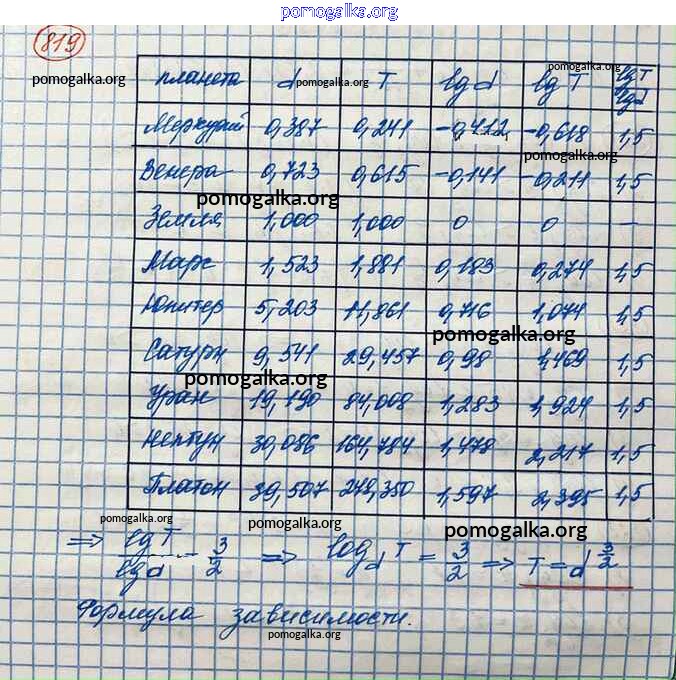 pomogalka.org
819
планета d T lgd lgT lgT/lgd
Меркурий 0,387 0,241 -0,412 -0,618 1,5
Венера 0,723 0,615 -0,141 -0,211 1,5
Земля 1,000 1,000 0 0 —
Марс 1,523 1,881 0,183 0,274 1,5
Юпитер 5,203 11,861 0,716 1,074 1,5
Сатурн 9,541 29,457 0,98 1,469 1,5
Уран 19,190 84,008 1,283 1,924 1,5
Нептун 30,086 164,784 1,478 2,217 1,5
Платон 39,507 248,350 1,597 2,395 1,5
⇒ lgT/lgd = 3/2 ⇒ log_d T = 3/2 ⇒ T = d^(3/2)
Формула зависимости.
pomogalka.org
pomogalka.org
pomogalka.org
pomogalka.org
pomogalka.org
pomogalka.org
pomogalka.org
pomogalka.org
pomogalka.org
pomogalka.org
pomogalka.org
pomogalka.org